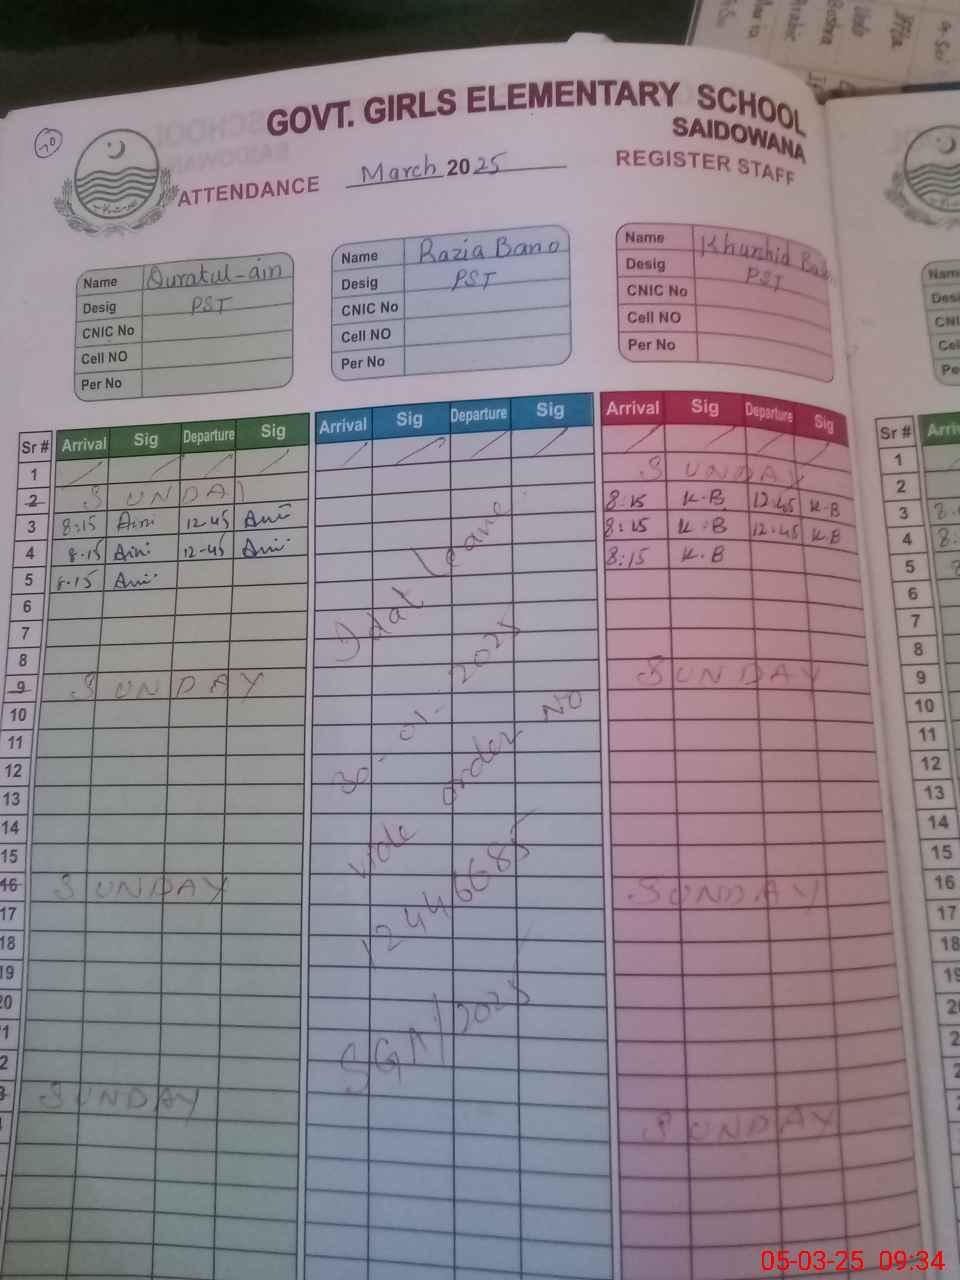 GOVT. GIRLS ELEMENTARY SCHOOL
SAIDOWANA
ATTENDANCE March 2025 REGISTER STAFF
Name Quratul-ain
Desig PST
CNIC No
Cell NO
Per No
Name Razia Bano
Desig PST
CNIC No
Cell NO
Per No
Name Khurshid
Desig PST
CNIC No
Cell NO
Per No
Sr # Arrival Sig Departure Sig Arrival Sig Departure Sig Arrival Sig Departure Sig
1
2 SUNDAY SUNDAY
3 8:15 Aini 12-45 Aini 8:15 K-B 12:45 K-B
4 8-15 Aini 12-45 Aini 8:15 K-B 12:45 K-B
5 8-15 Aini 8:15 K.B
6
7
8
9 SUNDAY SUNDAY
10
11
12
13
14
15
16 SUNDAY SUNDAY
17
18
19
20
SUNDAY SUNDAY
Idat Leave
30-01-2025
vide order NO
12446685
SGA/2025
Sr #
1
2
3
4
5
6
7
8
9
10
11
12
13
14
15
16
17
18
05-03-25 09:34